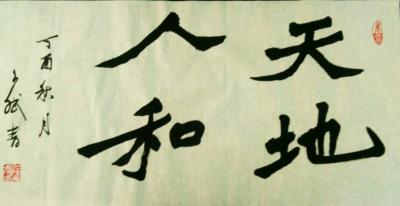 天地
人和
丁酉秋月
王斌书